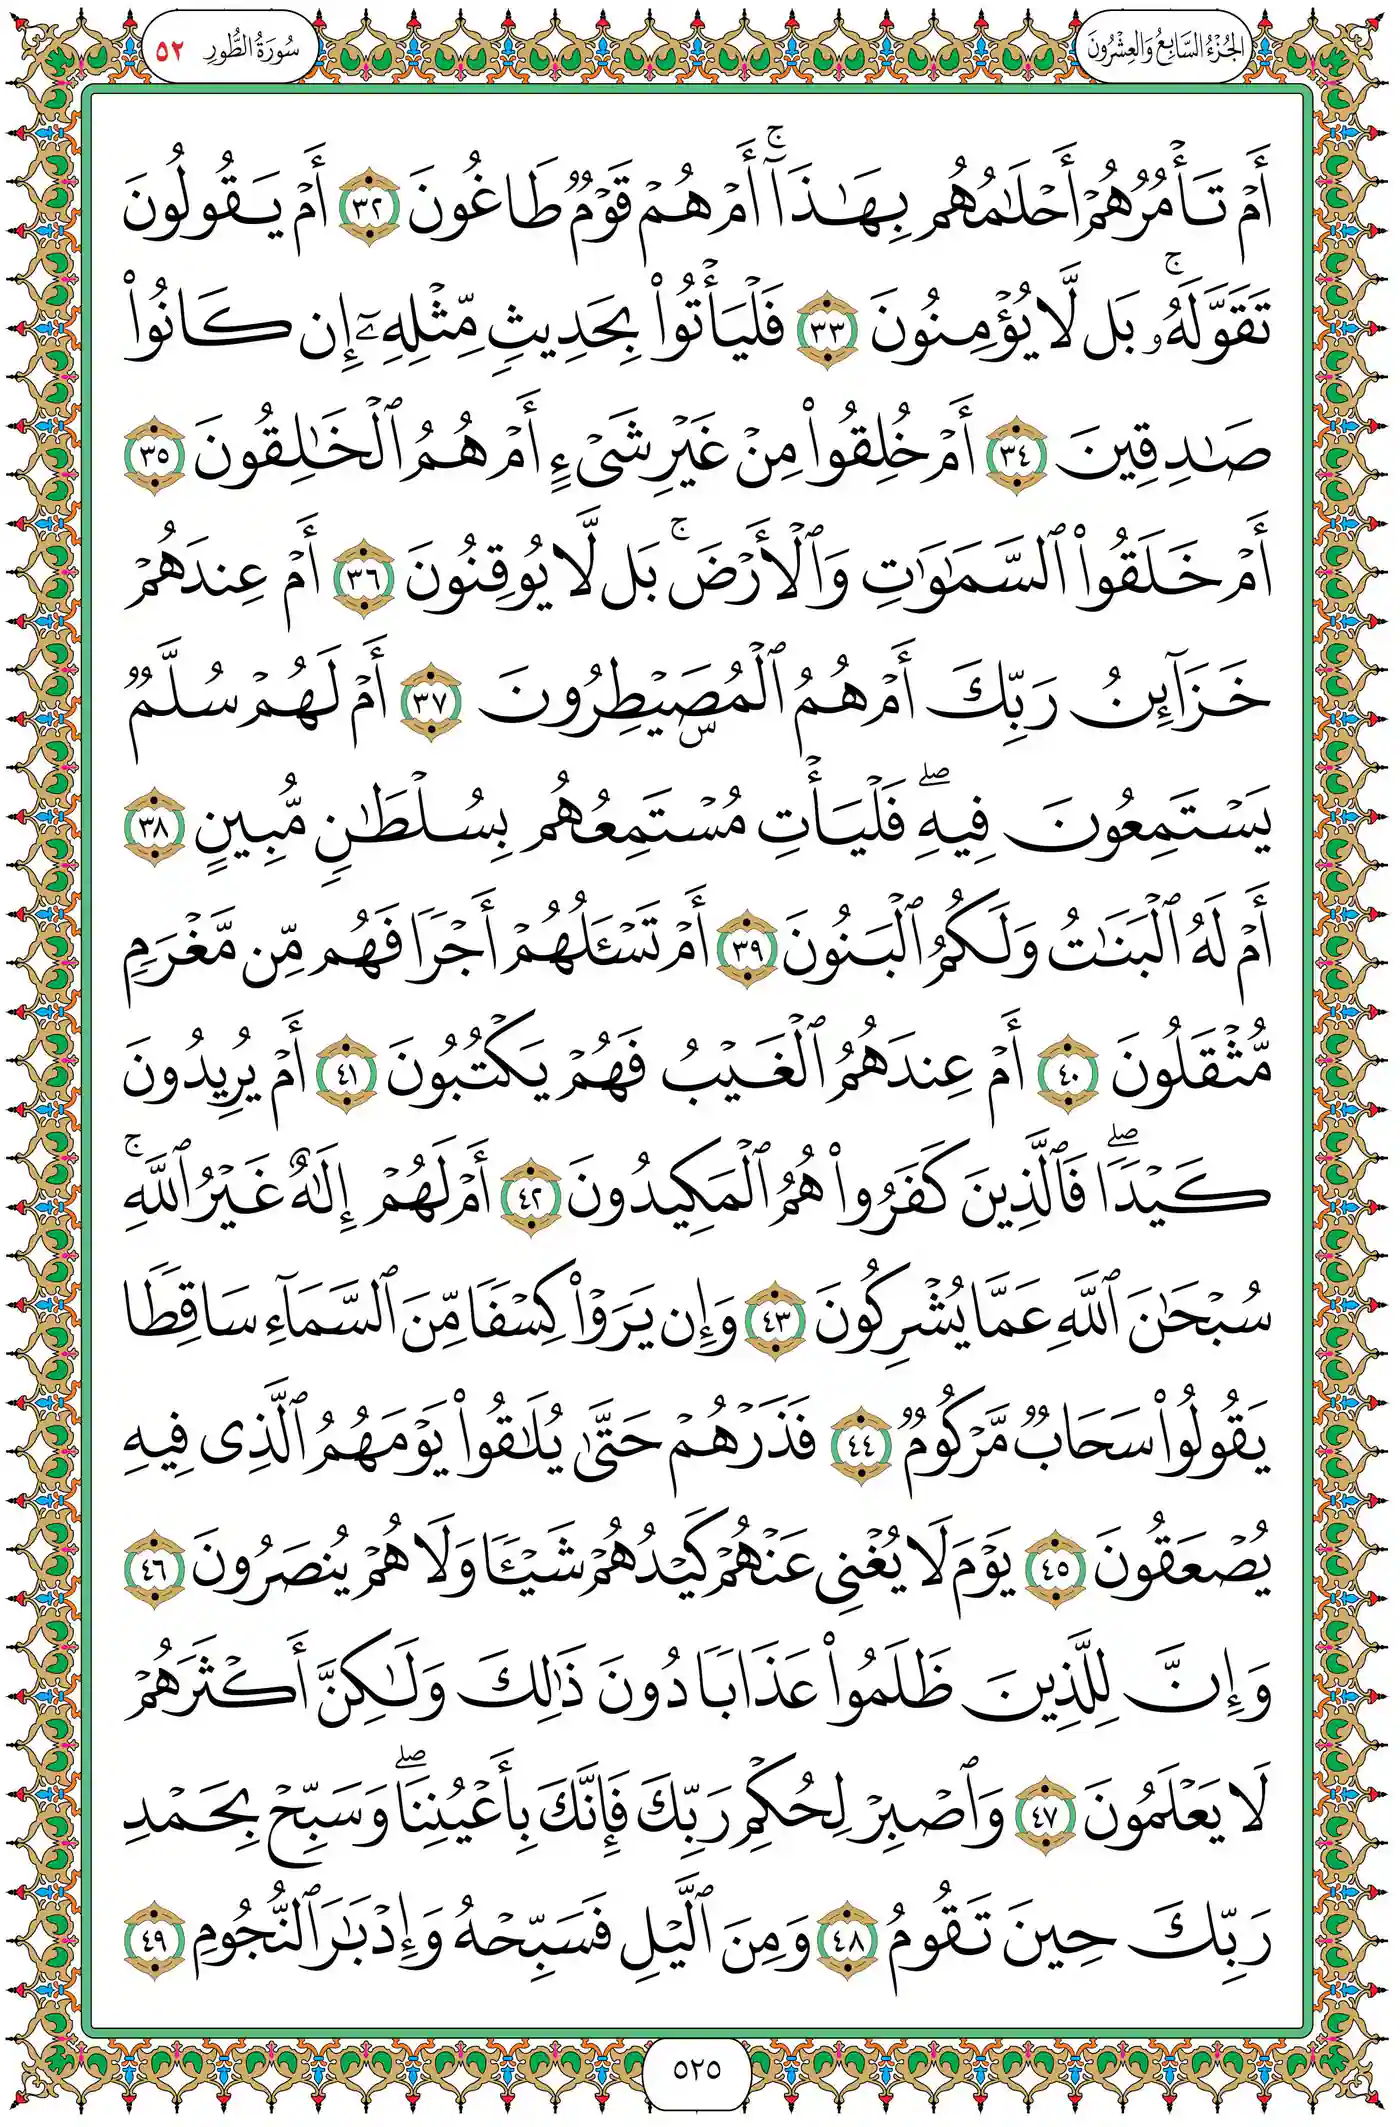 الجزء السابع والعشرون
سورة الطور ٥٢
أَمْ تَأْمُرُهُمْ أَحْلَٰمُهُم بِهَٰذَآ ۚ أَمْ هُمْ قَوْمٌ طَاغُونَ ٣٢ أَمْ يَقُولُونَ
تَقَوَّلَهُۥ ۚ بَل لَّا يُؤْمِنُونَ ٣٣ فَلْيَأْتُوا۟ بِحَدِيثٍ مِّثْلِهِۦٓ إِن كَانُوا۟
صَٰدِقِينَ ٣٤ أَمْ خُلِقُوا۟ مِنْ غَيْرِ شَىْءٍ أَمْ هُمُ ٱلْخَٰلِقُونَ ٣٥
أَمْ خَلَقُوا۟ ٱلسَّمَٰوَٰتِ وَٱلْأَرْضَ ۚ بَل لَّا يُوقِنُونَ ٣٦ أَمْ عِندَهُمْ
خَزَآئِنُ رَبِّكَ أَمْ هُمُ ٱلْمُصَۣيْطِرُونَ ٣٧ أَمْ لَهُمْ سُلَّمٌ
يَسْتَمِعُونَ فِيهِ ۖ فَلْيَأْتِ مُسْتَمِعُهُم بِسُلْطَٰنٍ مُّبِينٍ ٣٨
أَمْ لَهُ ٱلْبَنَٰتُ وَلَكُمُ ٱلْبَنُونَ ٣٩ أَمْ تَسْـَٔلُهُمْ أَجْرًا فَهُم مِّن مَّغْرَمٍ
مُّثْقَلُونَ ٤٠ أَمْ عِندَهُمُ ٱلْغَيْبُ فَهُمْ يَكْتُبُونَ ٤١ أَمْ يُرِيدُونَ
كَيْدًا ۖ فَٱلَّذِينَ كَفَرُوا۟ هُمُ ٱلْمَكِيدُونَ ٤٢ أَمْ لَهُمْ إِلَٰهٌ غَيْرُ ٱللَّهِ ۚ
سُبْحَٰنَ ٱللَّهِ عَمَّا يُشْرِكُونَ ٤٣ وَإِن يَرَوْا۟ كِسْفًا مِّنَ ٱلسَّمَآءِ سَاقِطًا
يَقُولُوا۟ سَحَابٌ مَّرْكُومٌ ٤٤ فَذَرْهُمْ حَتَّىٰ يُلَٰقُوا۟ يَوْمَهُمُ ٱلَّذِى فِيهِ
يُصْعَقُونَ ٤٥ يَوْمَ لَا يُغْنِى عَنْهُمْ كَيْدُهُمْ شَيْـًٔا وَلَا هُمْ يُنصَرُونَ ٤٦
وَإِنَّ لِلَّذِينَ ظَلَمُوا۟ عَذَابًا دُونَ ذَٰلِكَ وَلَٰكِنَّ أَكْثَرَهُمْ
لَا يَعْلَمُونَ ٤٧ وَٱصْبِرْ لِحُكْمِ رَبِّكَ فَإِنَّكَ بِأَعْيُنِنَا ۖ وَسَبِّحْ بِحَمْدِ
رَبِّكَ حِينَ تَقُومُ ٤٨ وَمِنَ ٱلَّيْلِ فَسَبِّحْهُ وَإِدْبَٰرَ ٱلنُّجُومِ ٤٩
٥٢٥